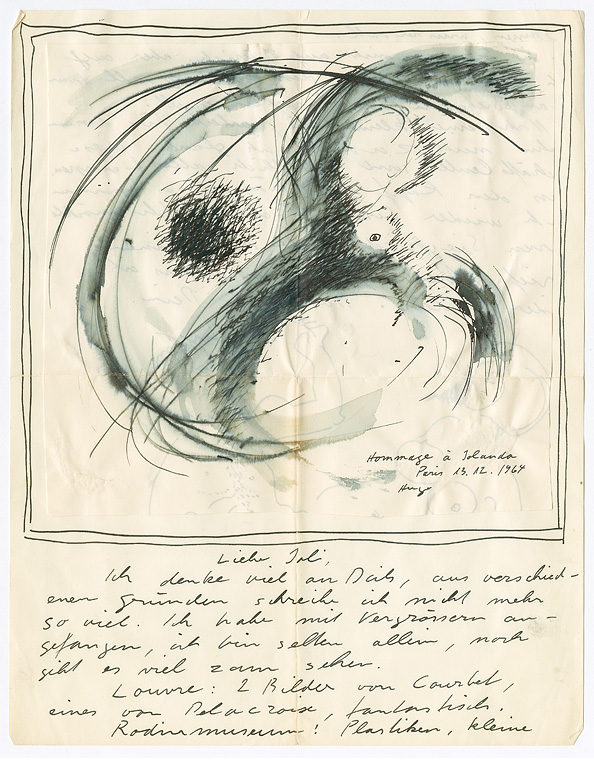 Hommage à Iolanda
Paris 13.12.1964
Hugo
Liebe Joli,
Ich denke viel an Dich, aus verschied-
enen gründen schreibe ich nicht mehr
so viel. Ich habe mit Vergrössern an-
gefangen, ich bin selten allein, noch
gibt es viel zum sehen.
Louvre: 2 Bilder von Courbet,
eines von Delacroix, fantastisch.
Rodinmuseum! Plastiken, kleine